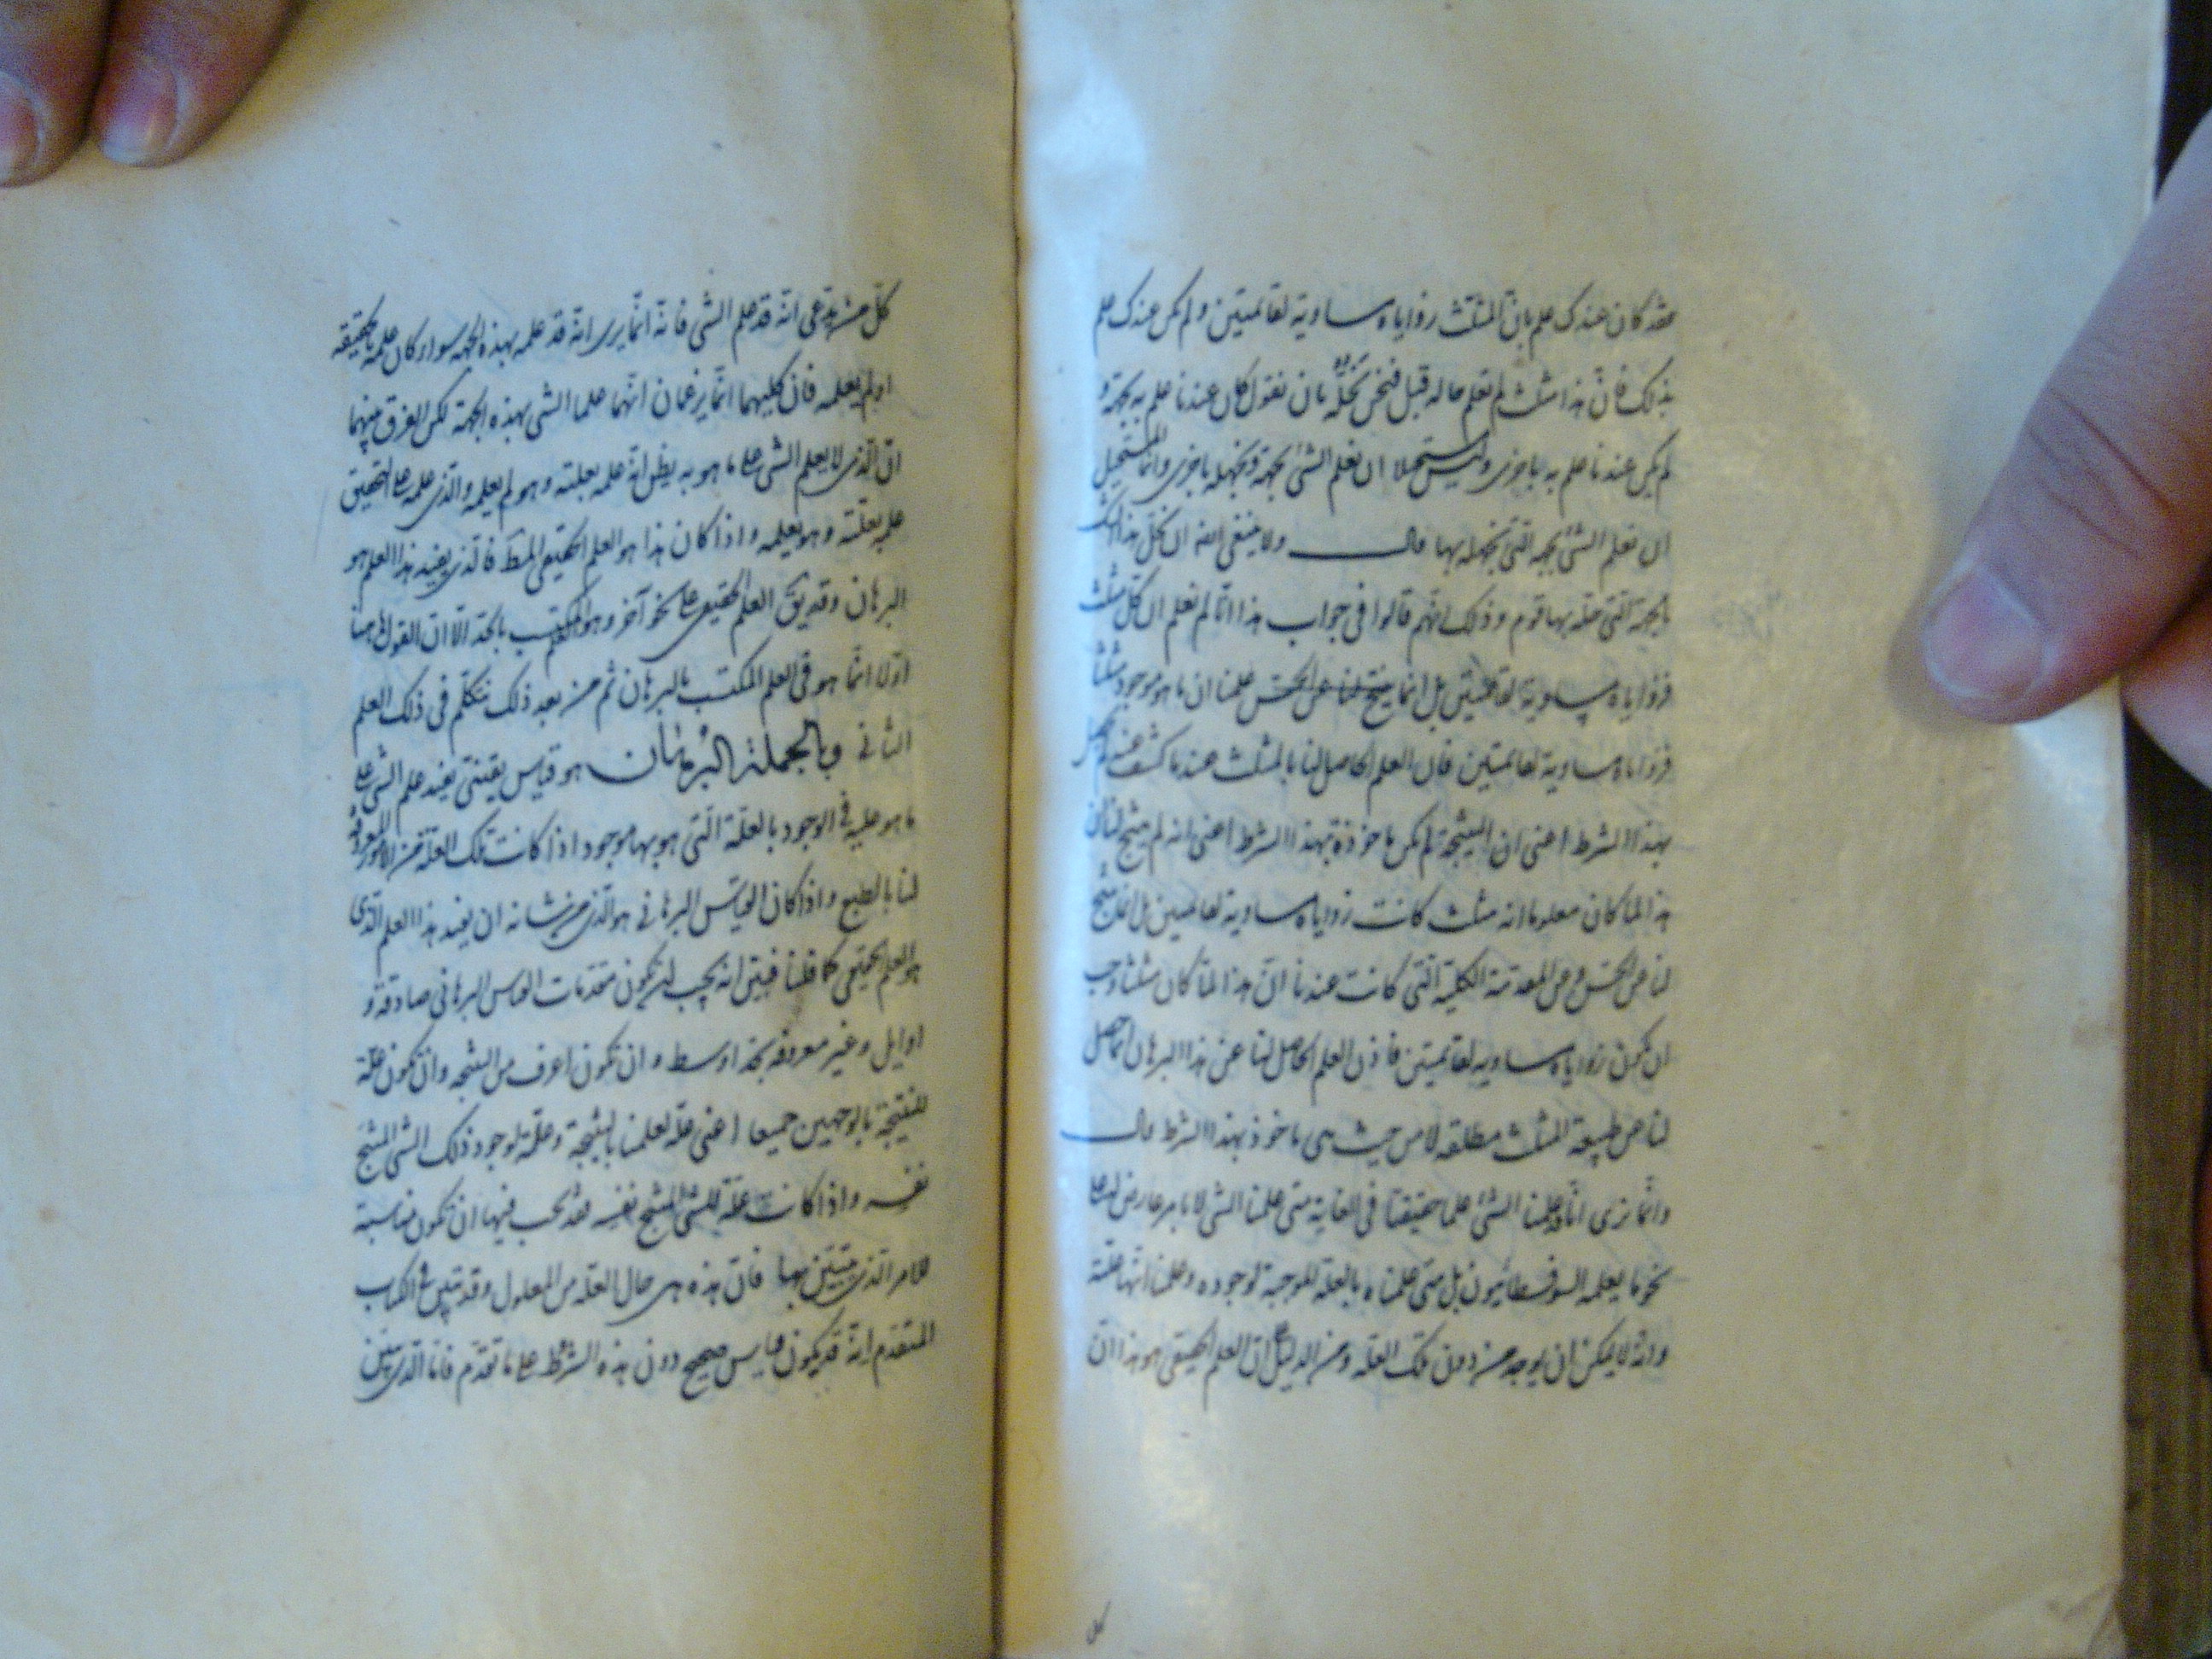 فقد كان عندك علم بان المثلث زواياه مساوية لقائمتين ولم يكن عندك علم
بذلك فان هذا مثلث لم تعلم حاله قبل فنحن نحله بان نقول كان عندنا علم به بجهة و
لم يكن عندنا علم به باخرى وليس مستحيلا ان نعلم الشئ بجهة ونجهله باخرى وانما المستحيل
ان نعلم الشئ بالجهة التى نجهله بها قال ولا ينبغى لنا ان نحل هذا الشك
بالجهة التى حله بها قوم وذلك انهم قالوا فى جواب هذا انا لم نعلم ان كل مثلث
فزواياه مساوية لقائمتين بل انما ينتج لنا عن الحس علمنا ان ما هو موجود مثلثا
فزواياه مساوية لقائمتين فان العلم الحاصل لنا بالمثلث عندما كشف عنه لم يحصل
بهذا الشرط اعنى ان النتيجة لم تكن ماخوذة بهذا الشرط اعنى انه لم ينتج لنا ان
هذا لما كان معلوما انه مثلث كانت زواياه مساوية لقائمتين بل انما ينتج
لنا عن الحس وعن المقدمة الكلية التى كانت عندنا ان هذا لما كان مثلثا وجب
ان تكون زواياه مساوية لقائمتين فاذن العلم الحاصل لنا عن هذا البرهان انما حصل
لنا عن طبيعة المثلث مطلقة لا من حيث هى ماخوذ بهذا الشرط قال
وانما نرى انا قد علمنا الشئ علما حقيقيا فى الغاية متى علمنا الشئ لا بامر عارض له على
نحو ما يعلمه السوفسطائيون بل متى علمناه بالعلة الموجبة لوجوده وعلمنا انها علته
وانه لا يمكن ان يوجد من دون تلك العلة ومن الدليل على ان العلم الحقيقى هو هذا ان
كل
كل من يدعى انه قد علم الشئ فانه انما يرى انه قد علمه بهذه الجهة سواء كان علمه بالحقيقة
او لم يعلمه فان كليهما انما يزعمان انهما علما الشئ بهذه الجهة لكن الفرق بينهما
ان الذى لا يعلم الشئ على ما هو به يظن انه علمه بعلته وهو لم يعلمه والذى علمه على التحقيق
علمه بعلته وهو يعلمه واذا كان هذا هو العلم الحقيقى المط فالذى يفيد هذا العلم هو
البرهان وقد يق العلم الحقيقى على نحو آخر وهو المكتسب بالحد الا ان القول ههنا
اولا انما هو فى العلم المكتسب بالبرهان ثم من بعد ذلك نتكلم فى ذلك العلم
الثانى وبالجملة البرهان هو قياس يقينى يفيد علم الشئ على
ما هو عليه فى الوجود بالعلة التى هو بها موجود اذا كانت تلك العلة من الامور المعروفة
لنا بالطبع واذا كان القياس البرهانى هو الذى من شانه ان يفيد هذا العلم الذى
هو العلم الحقيقى كما قلنا فبين انه يجب ان تكون مقدمات القياس البرهانى صادقة و
اوايل وغير معروفة بحد اوسط وان تكون اعرف من النتيجة وان تكون علة
للنتيجة بالوجهين جميعا اعنى علة لعلمنا بالنتيجة وعلة لوجود ذلك الشئ المنتج
نفسه واذا كانت علة للشئ المنتج نفسه فقد يجب فيها ان تكون مناسبة
للامر الذى يتبين بها فان هذه هى حال العلة من المعلول وقد تبين فى الكتاب
المتقدم انه قد يكون قياس صحيح دون هذه الشروط على ما تقدم فانا الذى يتبين